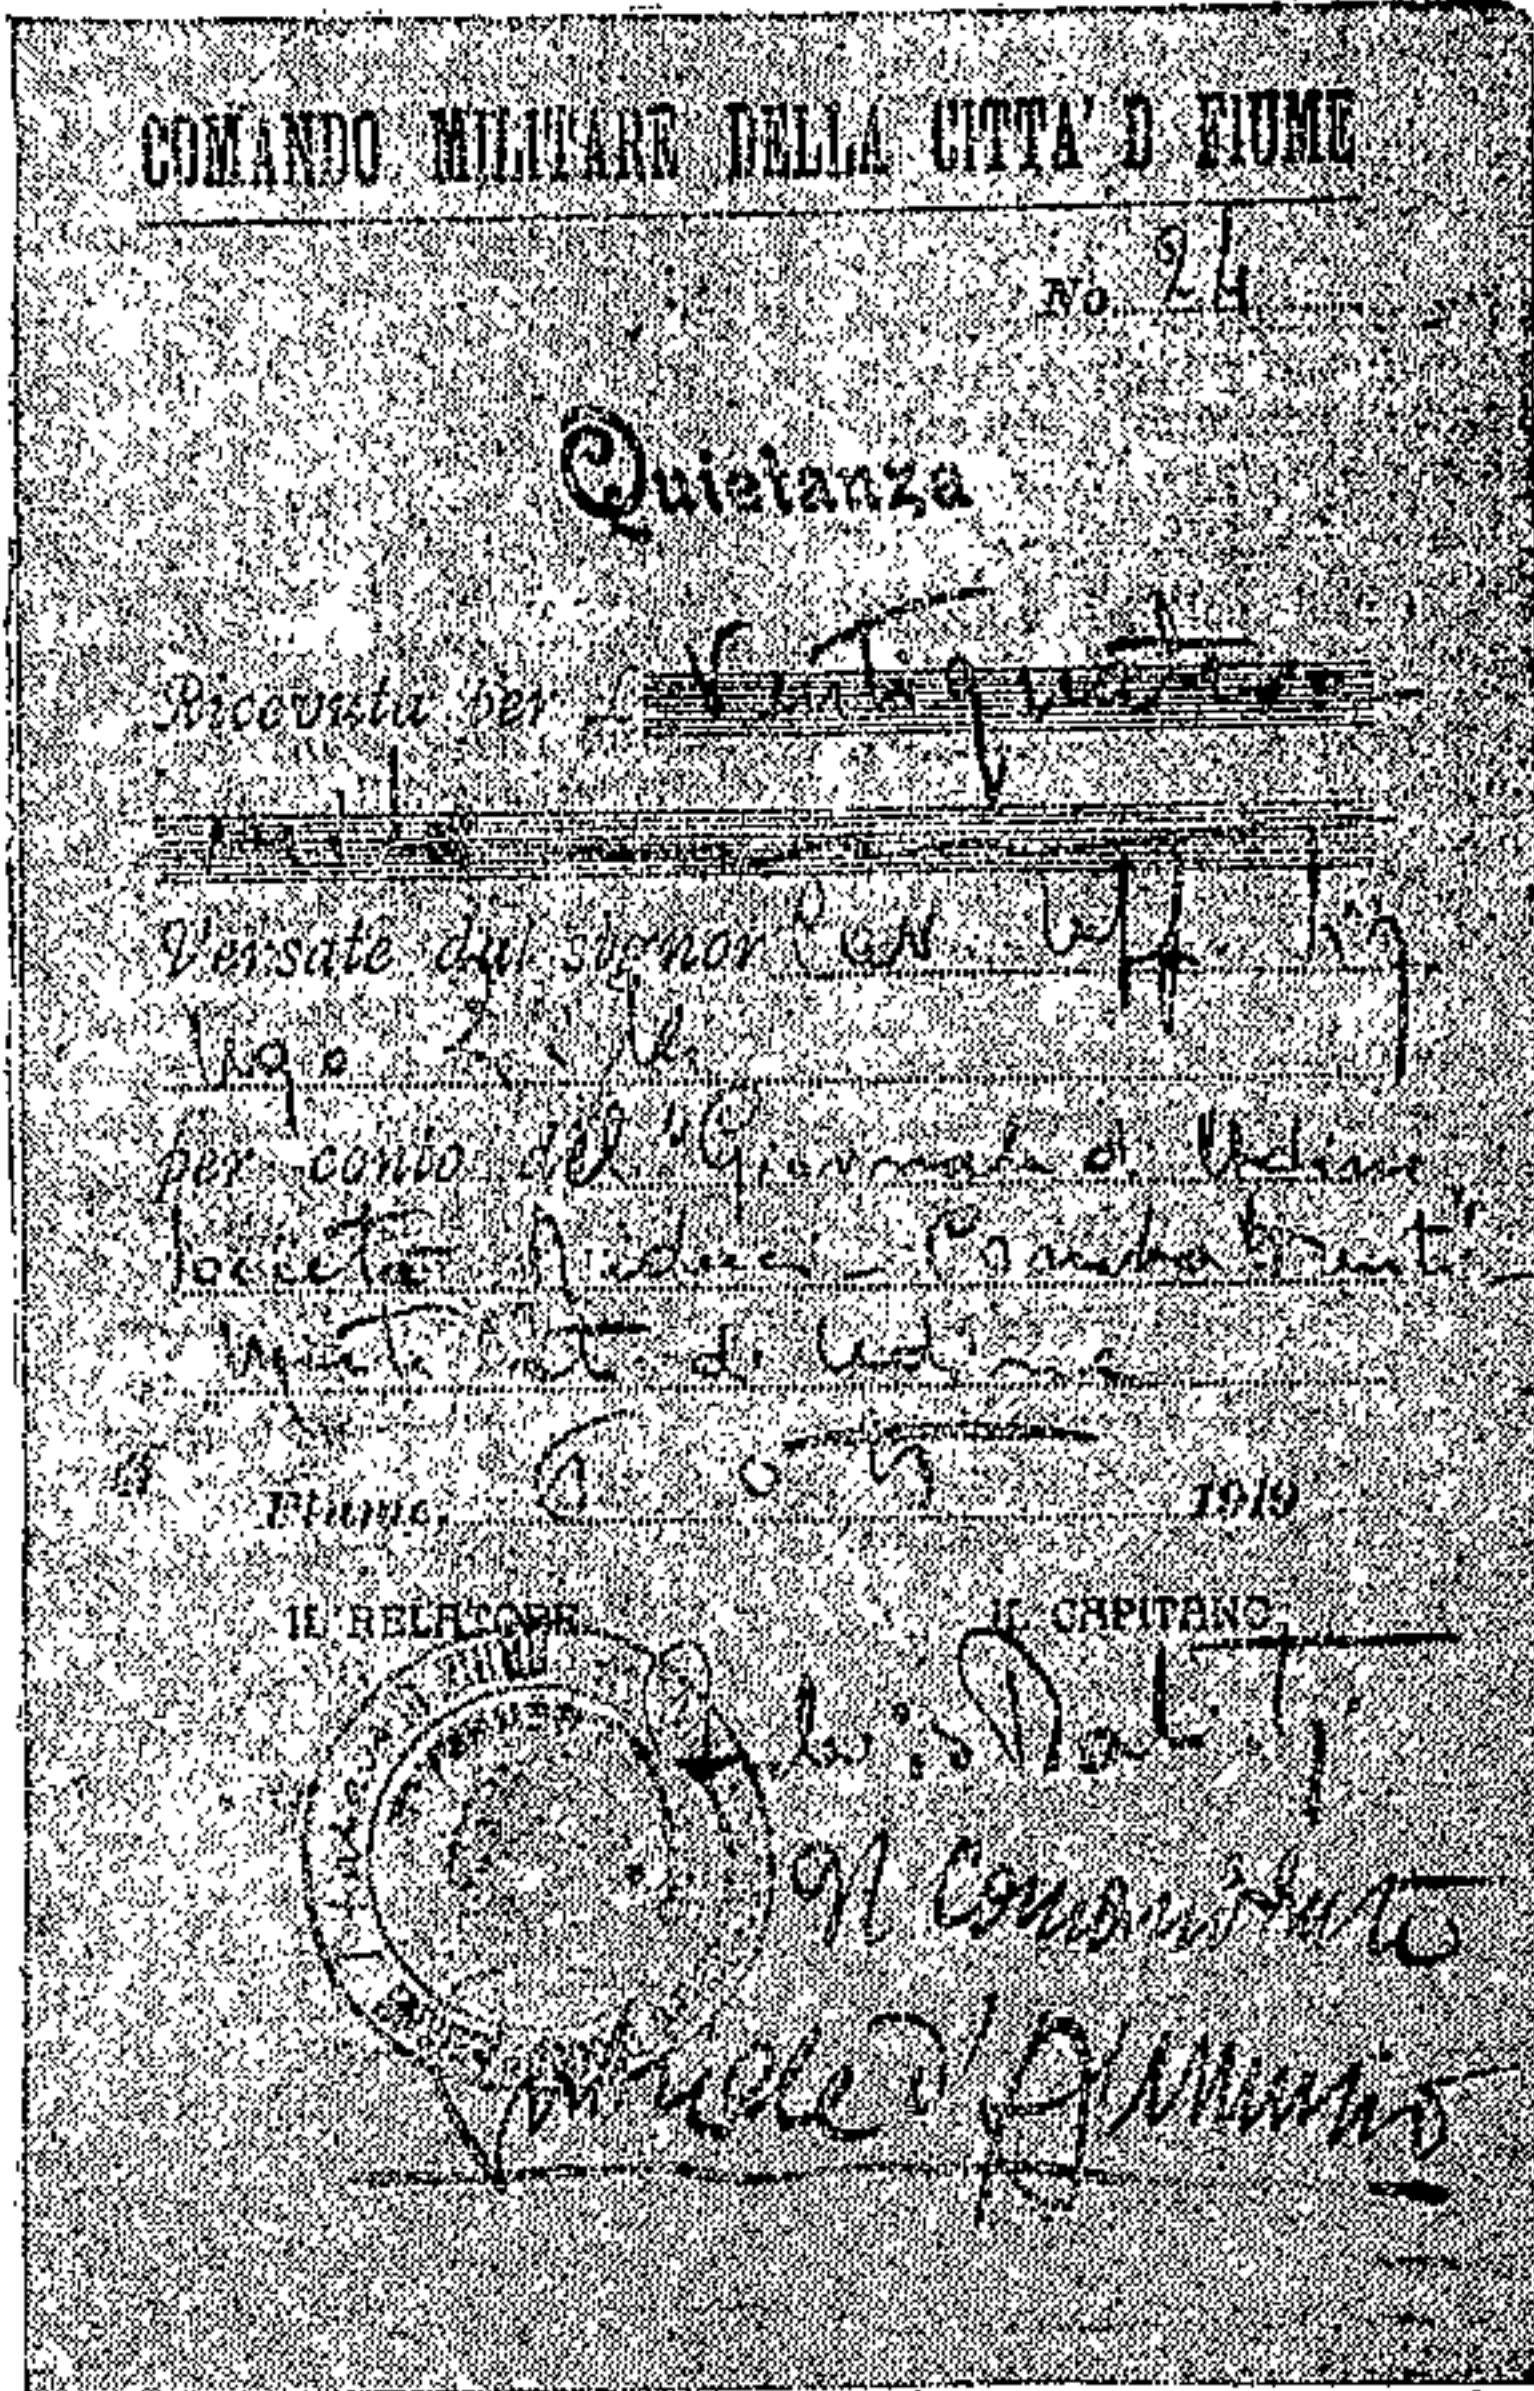 COMANDO MILITARE DELLA CITTA' D FIUME
No 24
Quietanza
Ricevuta per £ Ventiquattro
mila
Versate dal signor Cav. Uff.
Ugo
per conto del "Giornale di Udine
Società Reduci - Combattenti"
di Udine
Fiume, 1919
IL RELATORE
IL CAPITANO
Il Comandante
Gabriele d'Annunzio